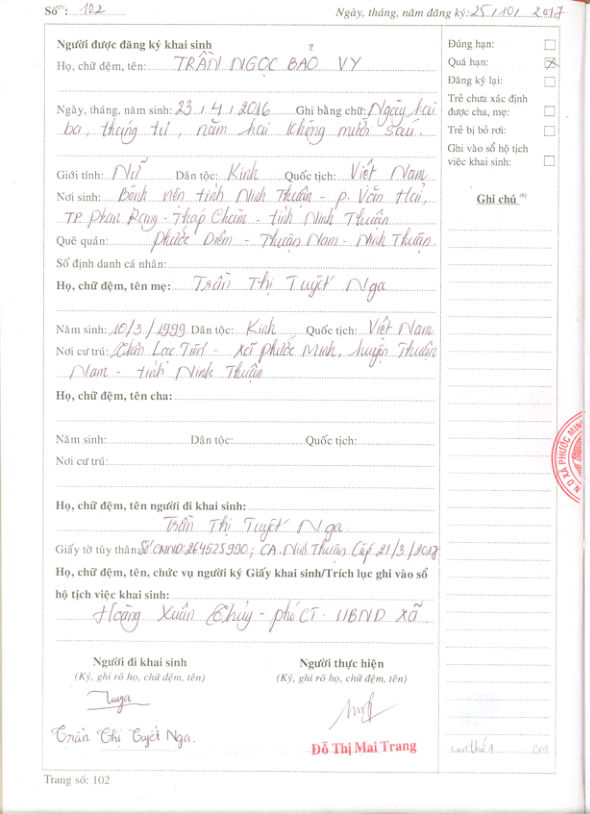 Số⁽⁵⁾: 102
Ngày, tháng, năm đăng ký: 25/10/2017
Người được đăng ký khai sinh
Họ, chữ đệm, tên: TRẦN NGỌC BẢO VY
Ngày, tháng, năm sinh: 23/4/2016 Ghi bằng chữ: Ngày hai
ba, tháng tư, năm hai không mười sáu.
Giới tính: Nữ Dân tộc: Kinh Quốc tịch: Việt Nam
Nơi sinh: Bệnh viện tỉnh Ninh Thuận - P. Văn Hải,
TP. Phan Rang - Tháp Chàm - tỉnh Ninh Thuận
Quê quán: Phước Diêm - Thuận Nam - Ninh Thuận
Số định danh cá nhân:
Họ, chữ đệm, tên mẹ: Trần Thị Tuyết Nga
Năm sinh: 10/3/1999 Dân tộc: Kinh Quốc tịch: Việt Nam
Nơi cư trú: Thôn Lạc Tiến - xã Phước Minh, huyện Thuận
Nam - tỉnh Ninh Thuận
Họ, chữ đệm, tên cha:
Năm sinh: Dân tộc: Quốc tịch:
Nơi cư trú:
Họ, chữ đệm, tên người đi khai sinh:
Trần Thị Tuyết Nga
Giấy tờ tùy thân: Số CMND: 264525990; CA. Ninh Thuận Cấp 21/3/
Họ, chữ đệm, tên, chức vụ người ký Giấy khai sinh/Trích lục ghi vào sổ
hộ tịch việc khai sinh:
Hoàng Xuân Thủy - phó CT. UBND xã.
Người đi khai sinh
(Ký, ghi rõ họ, chữ đệm, tên)
Nga
Trần Thị Tuyết Nga.
Người thực hiện
(Ký, ghi rõ họ, chữ đệm, tên)
Đỗ Thị Mai Trang
Trang số: 102
Đúng hạn:
Quá hạn: X
Đăng ký lại:
Trẻ chưa xác định
được cha, mẹ:
Trẻ bị bỏ rơi:
Ghi vào sổ hộ tịch
việc khai sinh:
Ghi chú ⁽⁶⁾
N.D XÃ PHƯỚC MINH